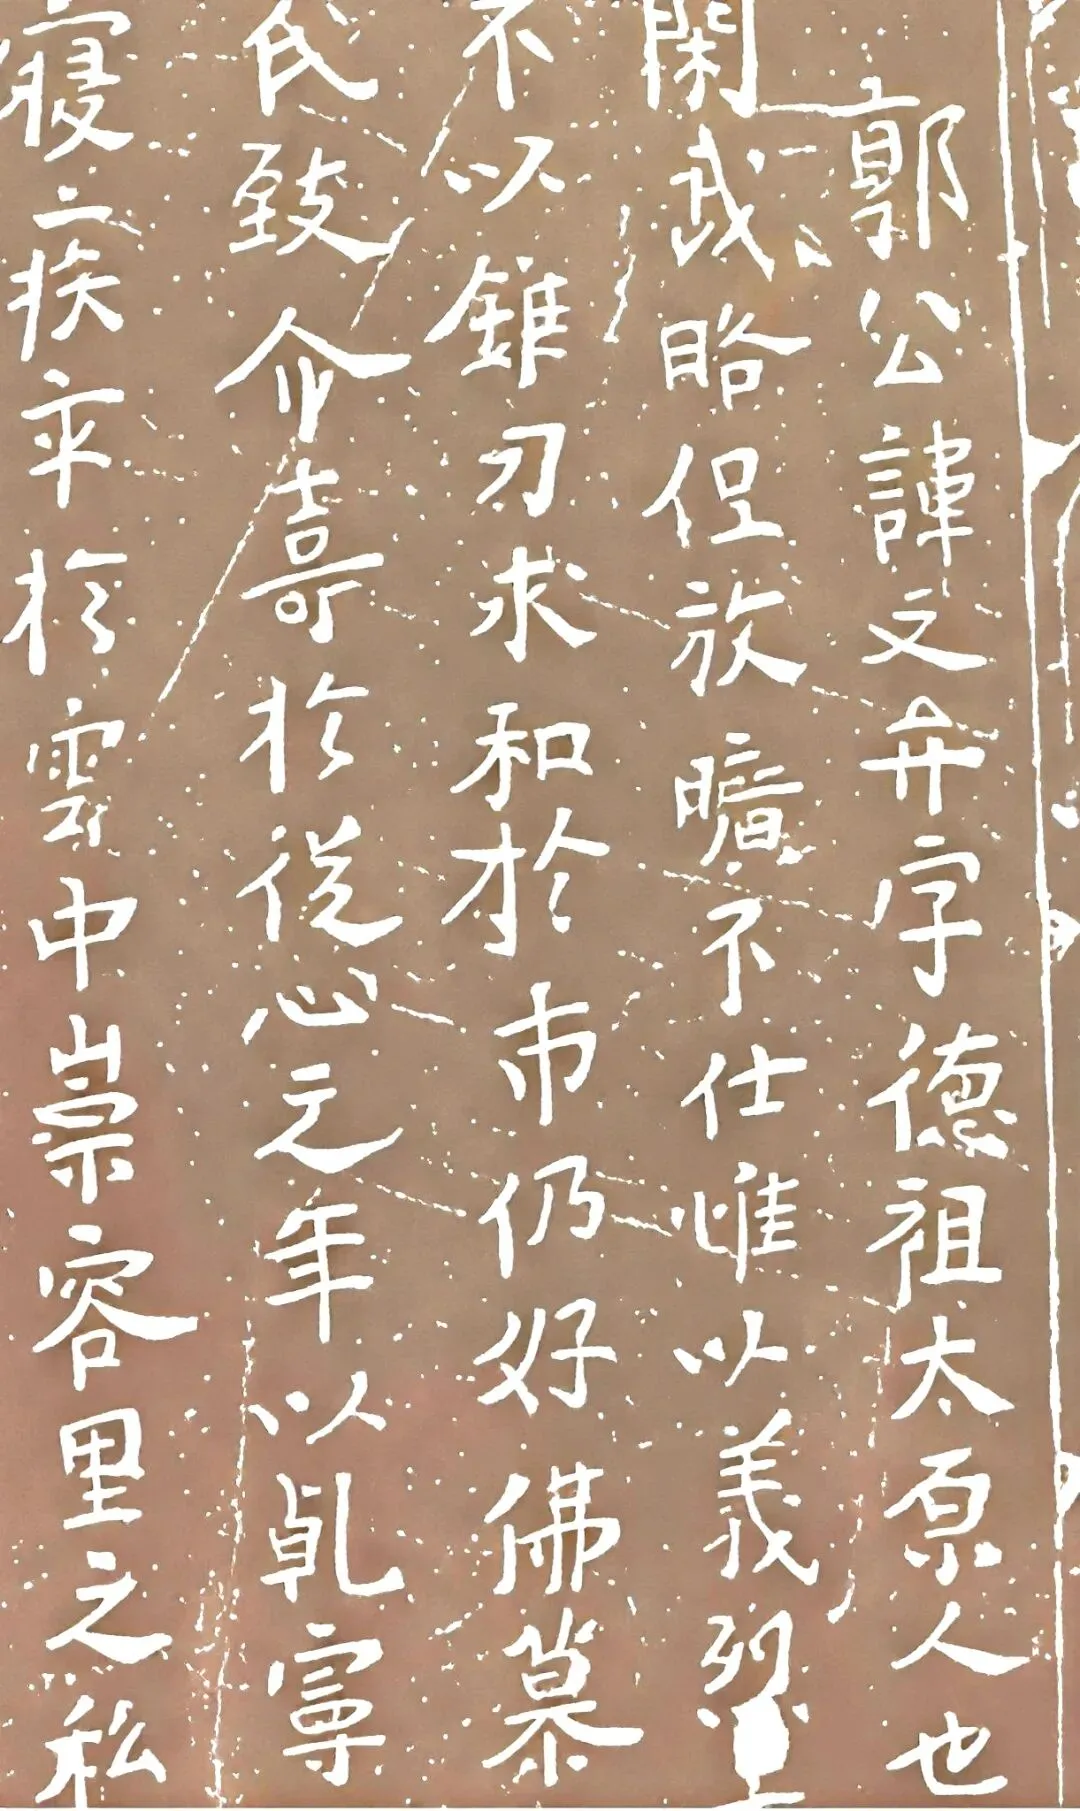 郭公諱文弁字德祖太原人也
閑武略但放曠不仕唯以義烈
不以錐刃求利於市仍好佛慕
氏致介壽於從心元年以乾寧
寢疾卒於雲中崇容里之私